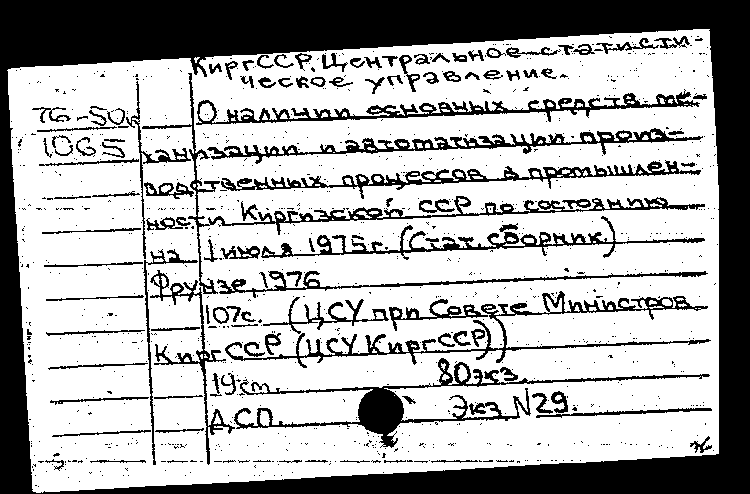 КиргССР. Центральное статисти-
ческое управление.
76-50к
1065
О наличии основных средств ме-
ханизации и автоматизации произ-
водственных процессов в промышлен-
ности Киргизской ССР по состоянию
на 1 июля 1975г. (Стат. сборник)
Фрунзе, 1976.
107с. (ЦСУ при Совете Министров
КиргССР. (ЦСУ КиргССР))
19см. 80экз.
Д.С.П. Экз N29.